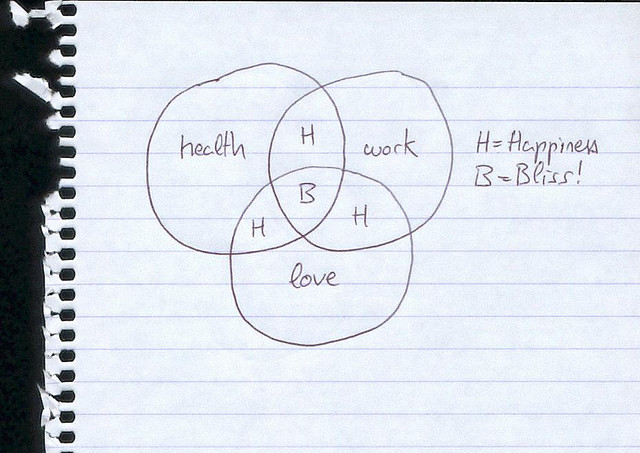 health
H
work
H = Happiness
B = Bliss!
B
H
H
love